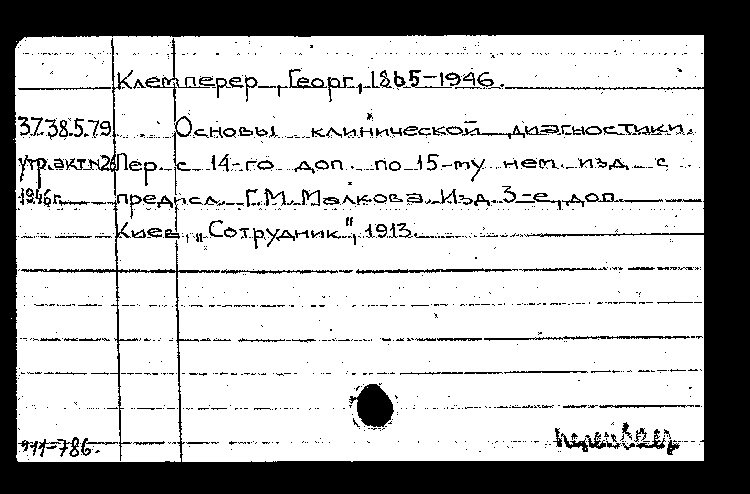 Клемперер, Георг, 1865-1946.
37.38.5.79. Основы клинической диагностики.
утр.акт№2 Пер. с 14-го доп. по 15-му нем. изд. с
1946г. предисл. Г.М. Малкова. Изд. 3-е, доп.
Киев, „Сотрудник", 1913.
911-786.